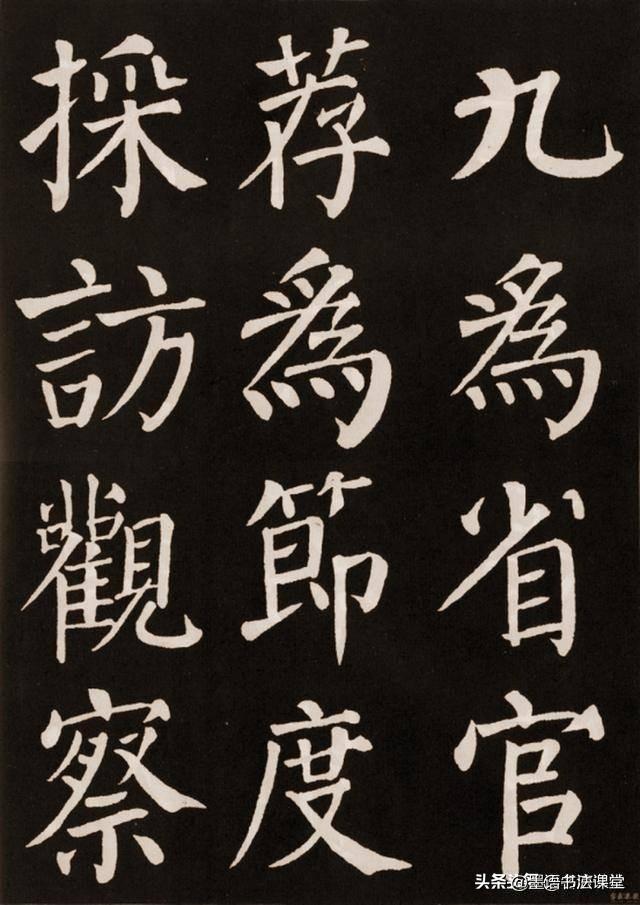 九為省官
荐為節度
採訪觀察
头条 @墨语书法课堂